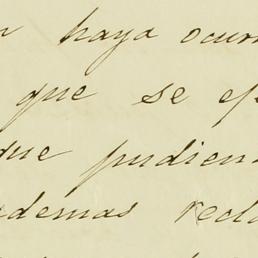 n haya ocurr
que se ef
que pudiera
edemas recla